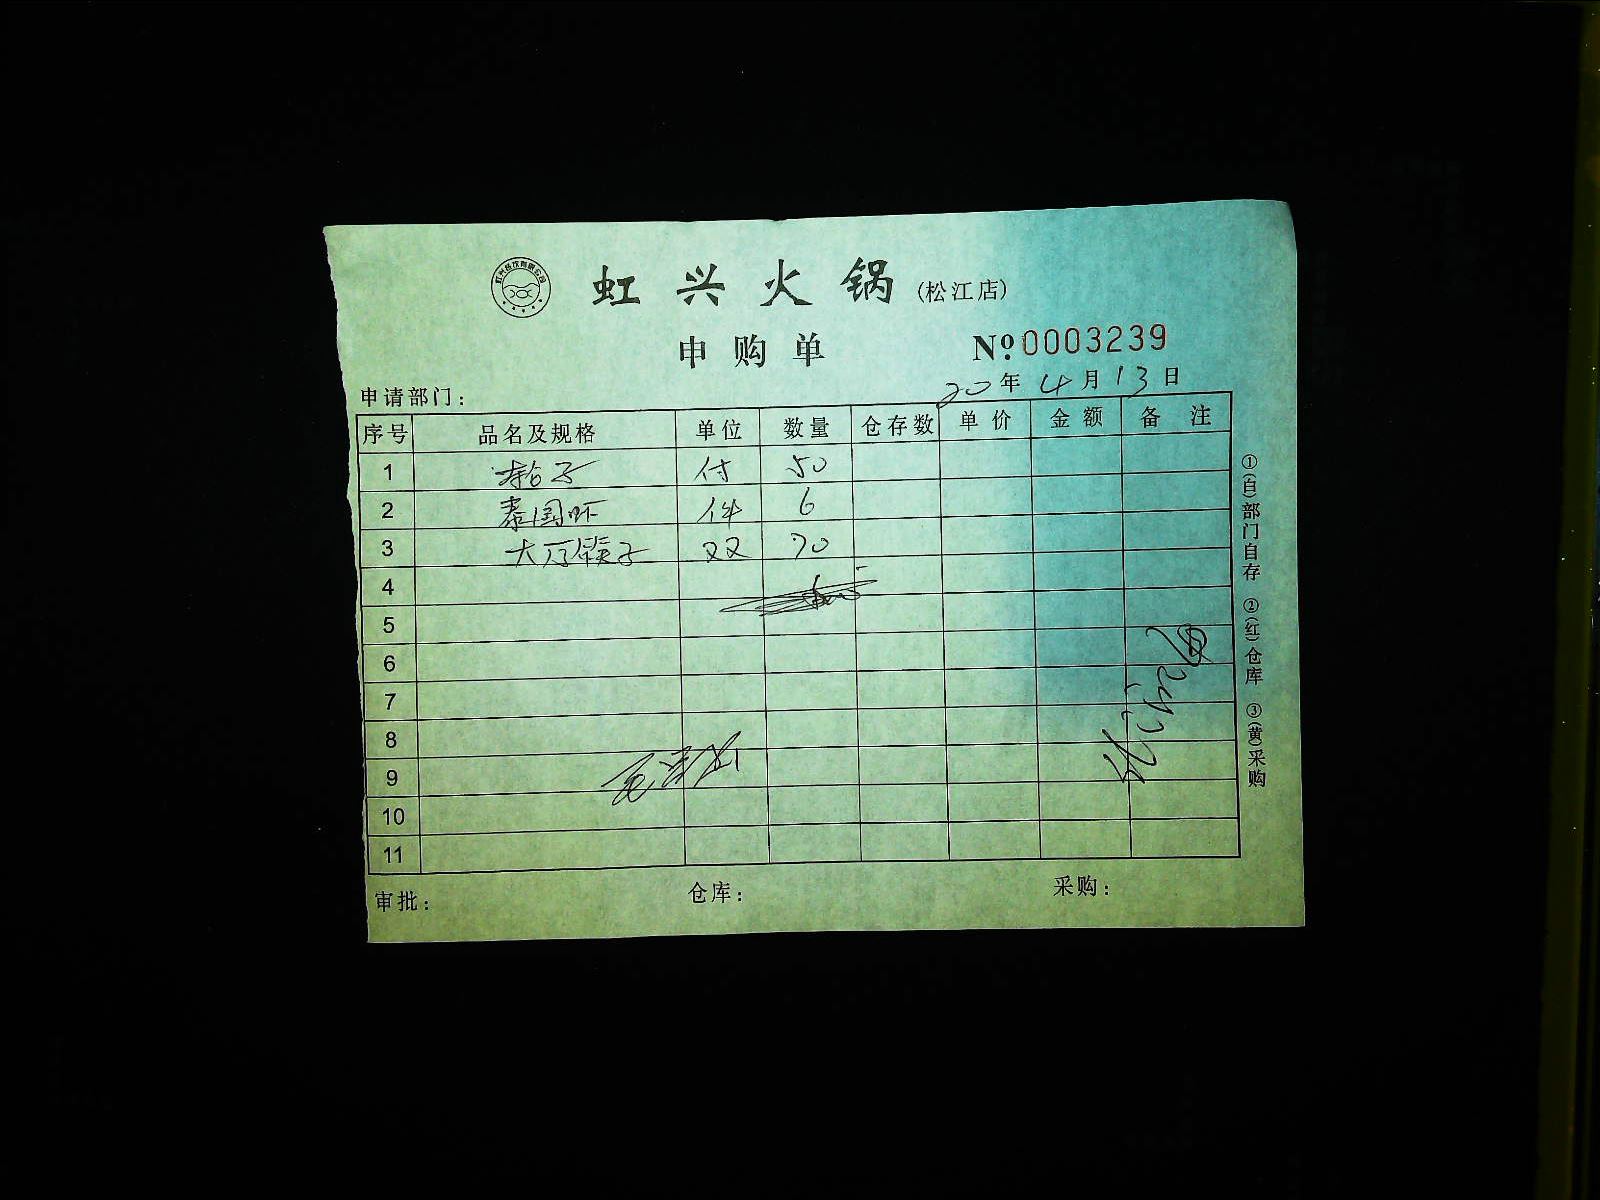 虹兴餐饮有限公司
虹兴火锅(松江店)
申购单 Nº 0003239
申请部门： 20年4月13日
序号 品名及规格 单位 数量 仓存数 单价 金额 备注
1 子 付 50
2 泰国杯 件 6
3 大厅筷子 双 70
4
5
6
7
8
9
10
11
审批： 仓库： 采购：
①(白)部门自存 ②(红)仓库 ③(黄)采购